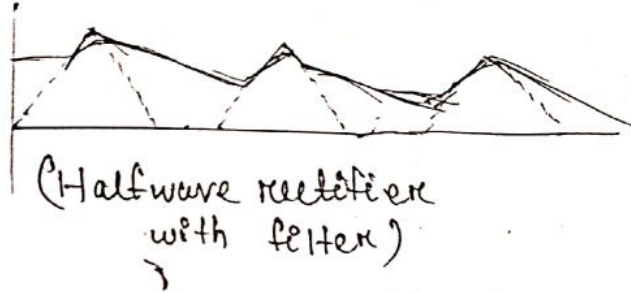 (Halfwave rectifier
with filter)